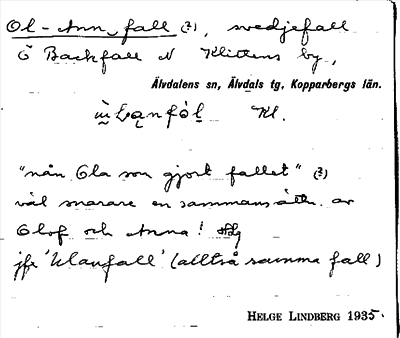 Ol-Ann, fall (?), svedjefall
Ö Backfall N Klittens by,
Älvdalens sn, Älvdals tg, Kopparbergs län.
Kl.
"nån Ola som gjort fallet" (?)
väl snarare en sammansättn. av
Olof och Anna!
jfr 'Ulanfall' (alltså samma fall)
HELGE LINDBERG 1935.